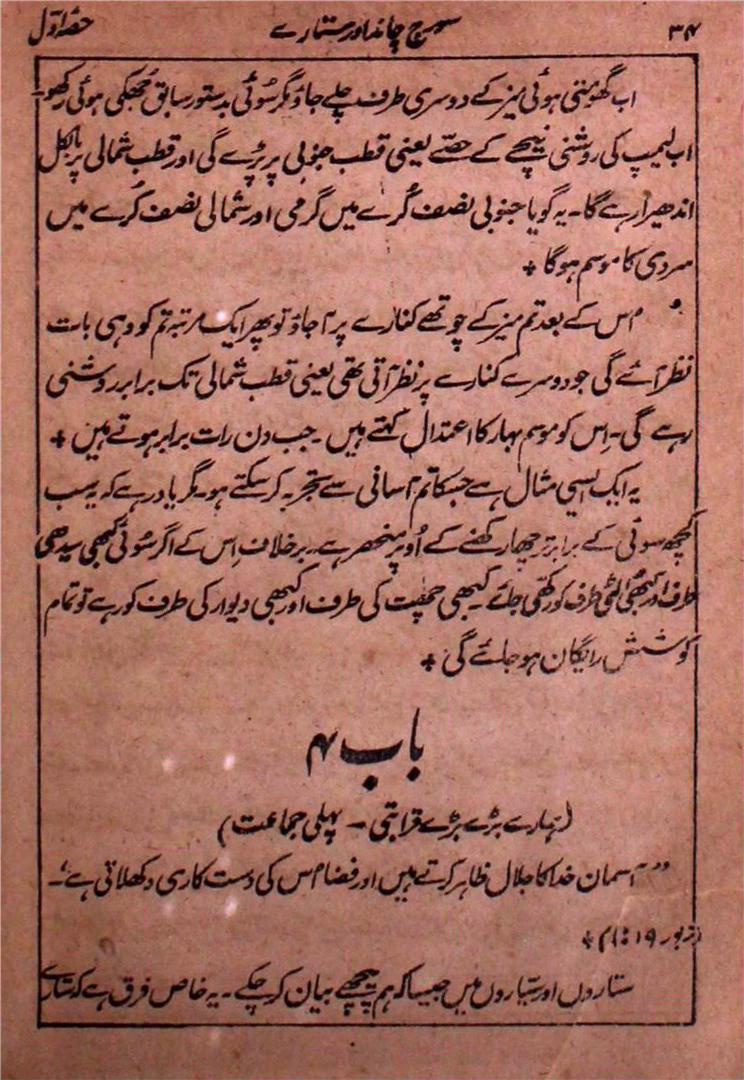 ۳۴ سورج چاند اور ستارے حصہ اوّل
اب گھومتی ہوئی میز کے دوسری طرف چلے جاؤ مگر سُوئی بدستور سابق جُھکی ہوئی رکھو۔
اب لیمپ کی روشنی نیچے کے حصّے یعنی قطب جنوبی پر پڑے گی اور قطب شمالی پر بالکل
اندھیرا رہے گا۔ یہ گویا جنوبی نصف کُرے میں گرمی اور شمالی نصف کُرے میں
سردی کا موسم ہوگا +
اس کے بعد تم میز کے چوتھے کنارے پر آجاؤ تو پھر ایک مرتبہ تم کو وہی بات
نظر آئے گی جو دوسرے کنارے پر نظر آتی تھی یعنی قطب شمالی تک برابر روشنی
رہے گی۔ اِس کو موسم بہار کا اعتدال کہتے ہیں۔ جب دن رات برابر ہوتے ہیں +
یہ ایک ایسی مثال ہے جسکا تم آسانی سے تجربہ کر سکتے ہو۔ مگر یاد رہے کہ یہ سب
کچھ سوئی کے برابر ترچھا رکھنے کے اُوپر منحصر ہے۔ برخلاف اِس کے اگر سُوئی کبھی سیدھی
طرف اور کبھی الٹی طرف کو رکھی جائے۔ کبھی چھت کی طرف اور کبھی دیوار کی طرف کو رہے تو تمام
کوشش رایگان ہو جائے گی +
باب ۴
(ہمارے بڑے بڑے قرابتی ۔ پہلی جماعت)
"آسمان خدا کا جلال ظاہر کرتے ہیں اور فضا اس کی دست کاری دکھلاتی ہے"۔
زبور ۱۹: +
ستاروں اور سیّاروں میں جیسا کہ ہم پیچھے بیان کر چکے۔ یہ خاص فرق ہے کہ ستارے